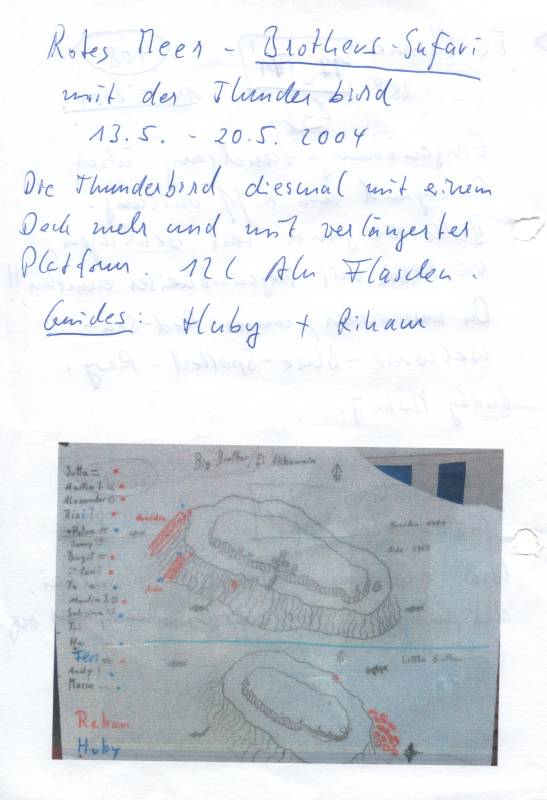 Rotes Meer - Brothers-Safari
mit der Thunderbird
13.5. - 20.5. 2004
Die Thunderbird diesmal mit einem
Deck mehr und mit verlängerter
Platform. 12 L Alu Flaschen.
Guides: Huby + Riham
Big Brother, El Akhawein
Jutta
Martin
Alexander
Rizi?
Petra
Numidia
Aida
Numidia
Aida
Martin
Feri
Andy
Little Brother
Reham
Huby